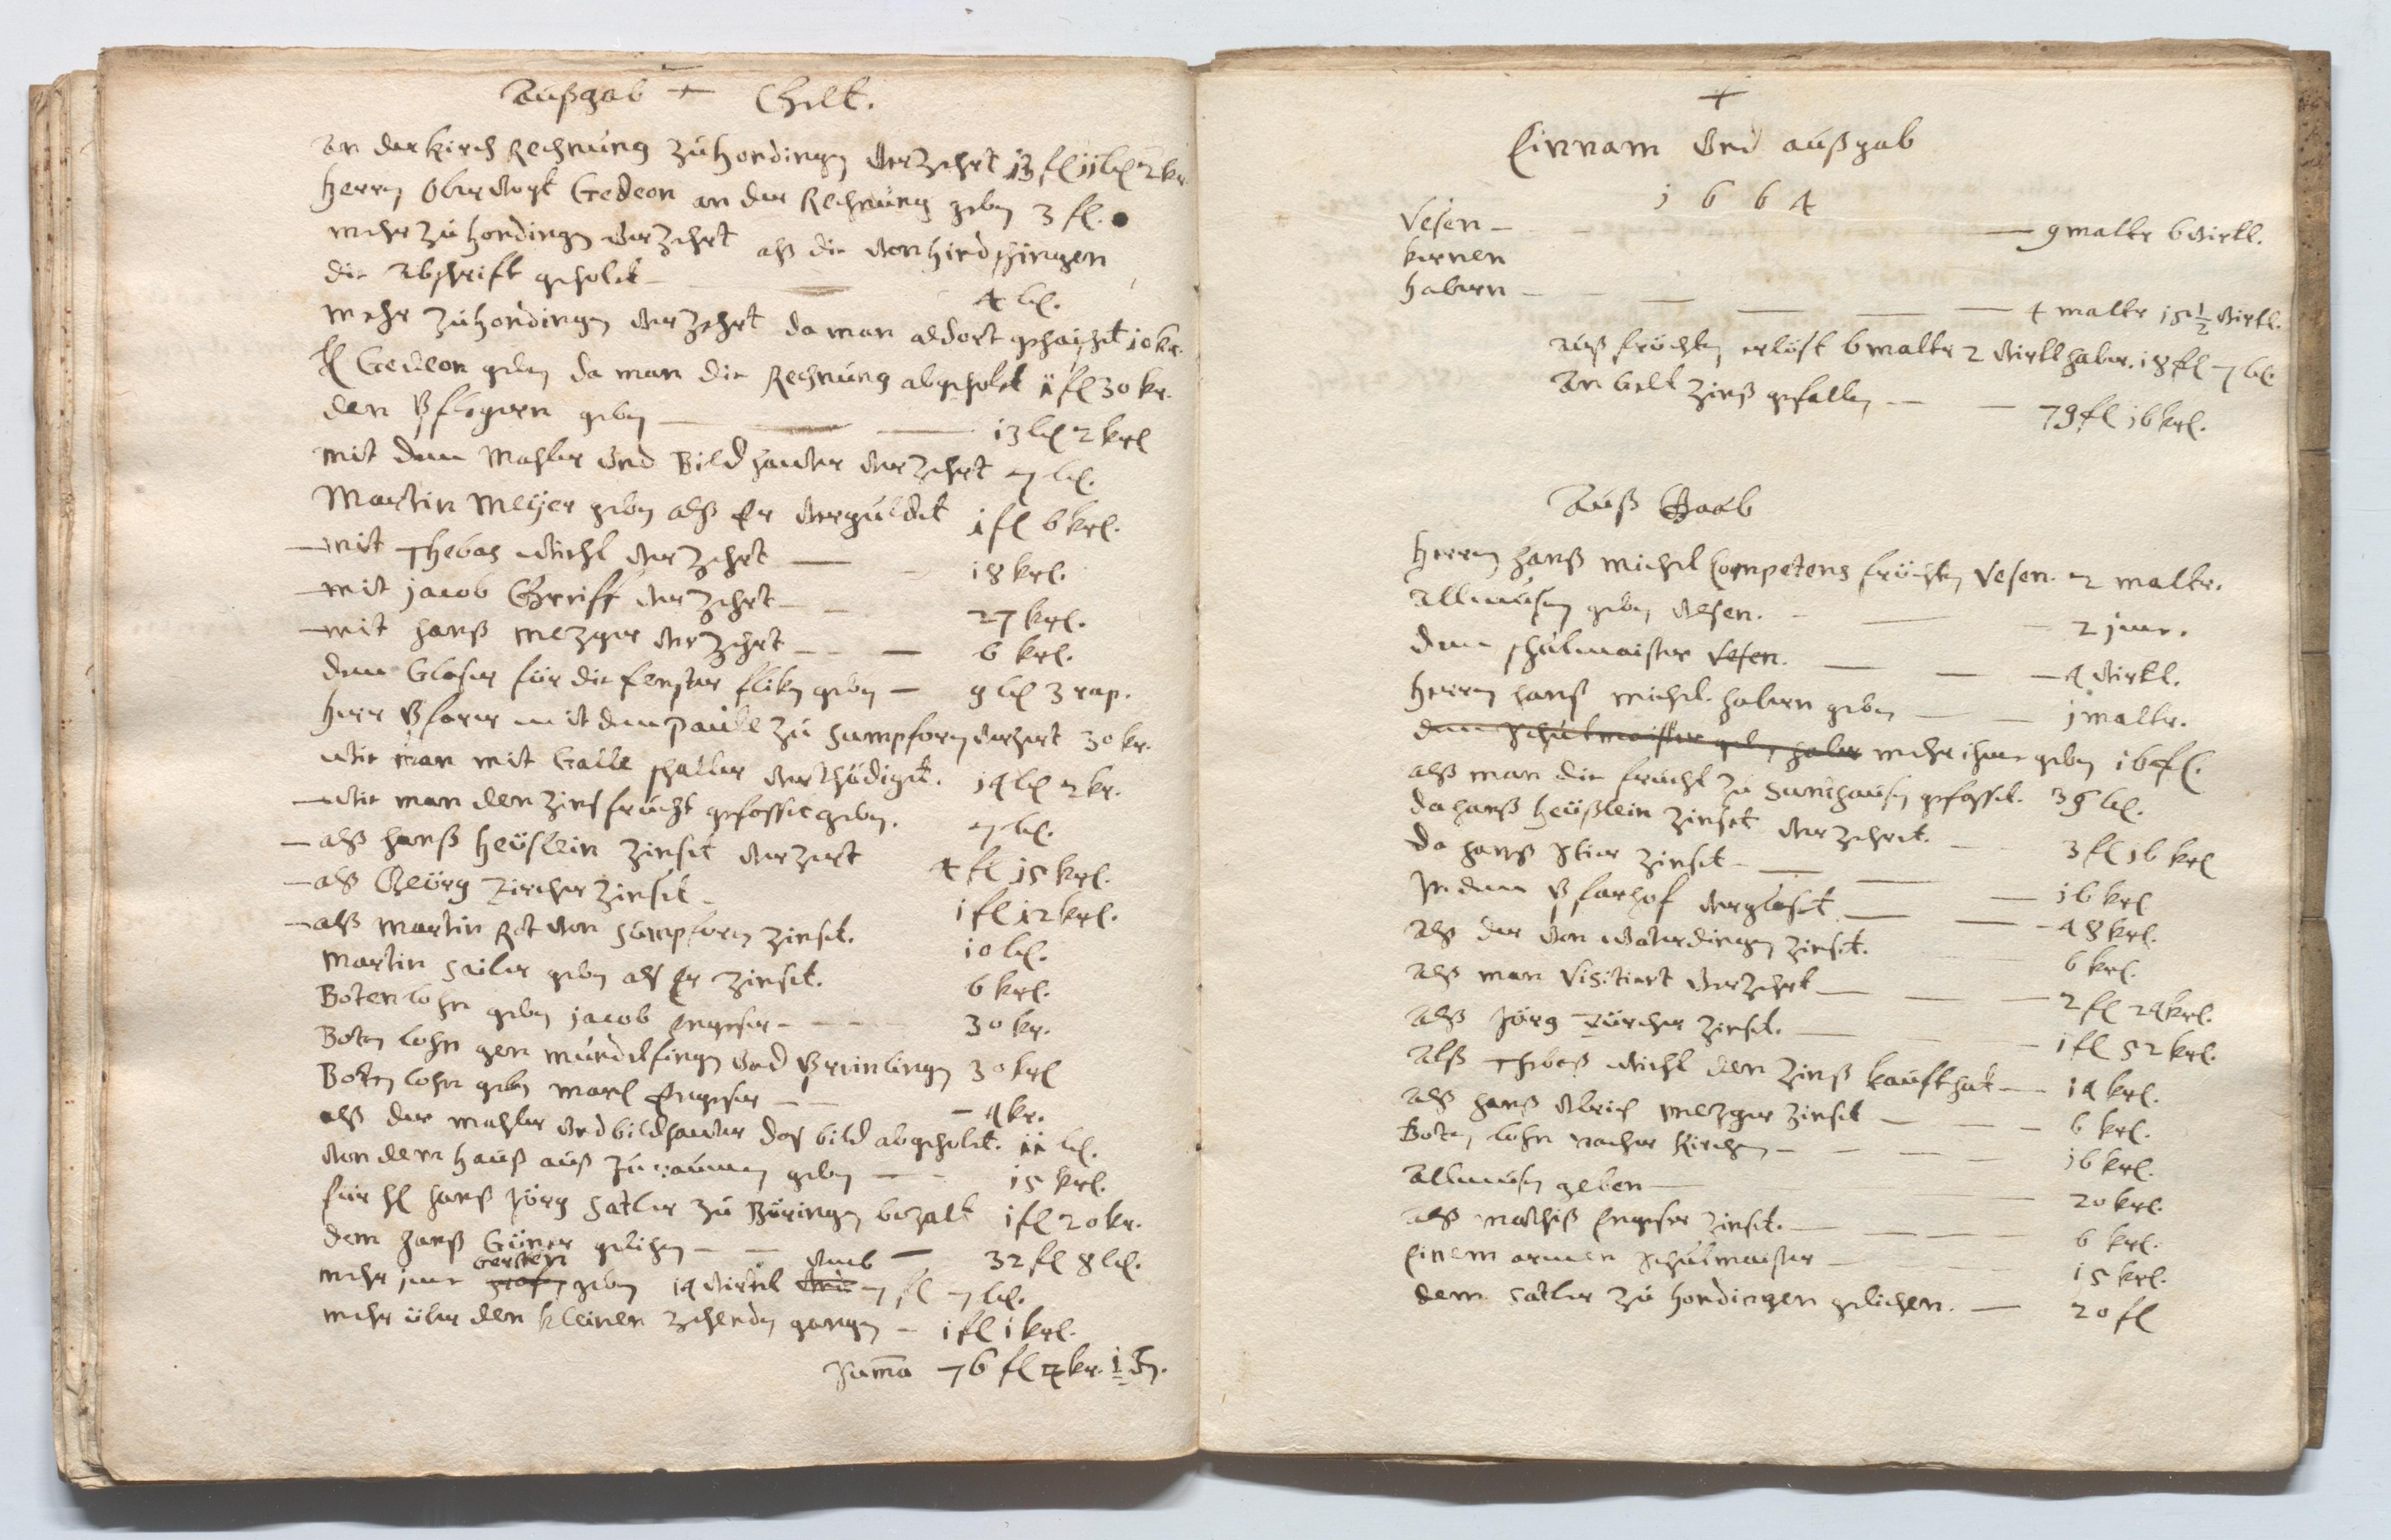 Außgab + Gelt.
An der kirch Rechnung zu Hondingen verzehrt 13 fl 11 bz 2 kr.
Herrn Obervogt Gedeon an der Rechnung geben 3 fl.
mehr zu Hondingen verzehrt alß die von
die Abschrift geholet 4 bz.
mehr zu Hondingen verzehrt da man aldort 10 kr.
H Gedeon geben da man die Rechnung abgeholet 1 fl 30 kr.
den Pflegern geben 13 bz 2 krz
mit dem Mahler und Bildhauer verzehrt 7 bz.
Martin Meÿer geben alß Er verguldet 1 fl 6 krz.
— mit Thebas verzehrt — 18 krz.
— mit jacob Greiff verzehrt — 27 krz.
— mit hanß Mezger verzehrt — — 6 krz.
dem Glaser für die fenster fliken geben — 9 bz 3 rap.
Herr Pfarer mit dem Paule zu Sumpforen verzert 30 kr.
wie man mit Galle schaller verthüdiget. 14 bz 2 kr.
— wie man den Zinß frucht gefasset geben. 7 bz.
— alß hanß Heüslein Zinset verzert 4 fl 15 krz.
— alß Geörg Zircher Zinset 1 fl 12 krz.
— alß Martin Rot von Sumpforen Zinset. 10 bz.
Martin Sailer geben alß Er Zinset. 6 krz.
Botenlohn geben jacob Engeser — 30 kr.
Boten lohn gen Mundelfingen und Breinlingen 30 krz
Boten lohn geben Marx Engeser — — 4 kr.
alß der Mahler und bildhauer das bild abgeholet. 11 bz.
von dem Hauß auß zu raumen geben — 15 krz.
für H hanß Jörg Satler zu Büringen bezalt 1 fl 20 kr.
dem hanß Güner gelihen — 32 fl 8 bz.
mehr jme gersten geben 14 virtel umb 7 fl 7 bz.
mehr über den kleinen Zehenden gangen — 1 fl 1 krz.
Summa 76 fl 4 kr. 1
+
Einnam und außgab
1664
Vesen — 9 maltr 6 virtl.
kernen
habern — 4 maltr 15 1/2 virtl.
auß früchten erlöst 6 maltr 2 virtl haber. 18 fl 7 bz
An Gelt Zinß gefallen — 79 fl 16 krz.
Auß Gaab
Herrn hanß Michel Competens früchten Vesen. 2 maltr.
Allmuosen geben vesen. 2 jme.
dem schulmaister Vesen. — 4 virtl.
Herrn hanß Michel habern geben — 1 maltr.
dem Schulmaister geben haber mehr ihme geben 16 fl.
alß man die frucht zu Sunthausen gefasset. 39 bz.
da hanß Heüßlein Zinset verzehret. 3 fl 16 krz
da hanß Stier Zinset — 16 krz
In dem Pfarhof verglaset — 48 krz.
Alß der von Waterdingen Zinset. 6 krz.
Alß man Visitiert verzehrt — 2 fl 24 krz.
Alß Jörg Zürcher Zinset. — 1 fl 52 krz.
Alß Thebaß den Zinß kauft hat — 14 krz.
Alß hanß Ulrich Mezger Zinset — 6 krz.
Boten lohn nacher Kirchen — 16 krz.
Allmuosen geben — 20 krz.
Alß Mathiß Engeser Zinset. — 6 krz.
Einem armen Schulmaister — 15 krz.
dem Satler zu Hondingen gelichen. — 20 fl